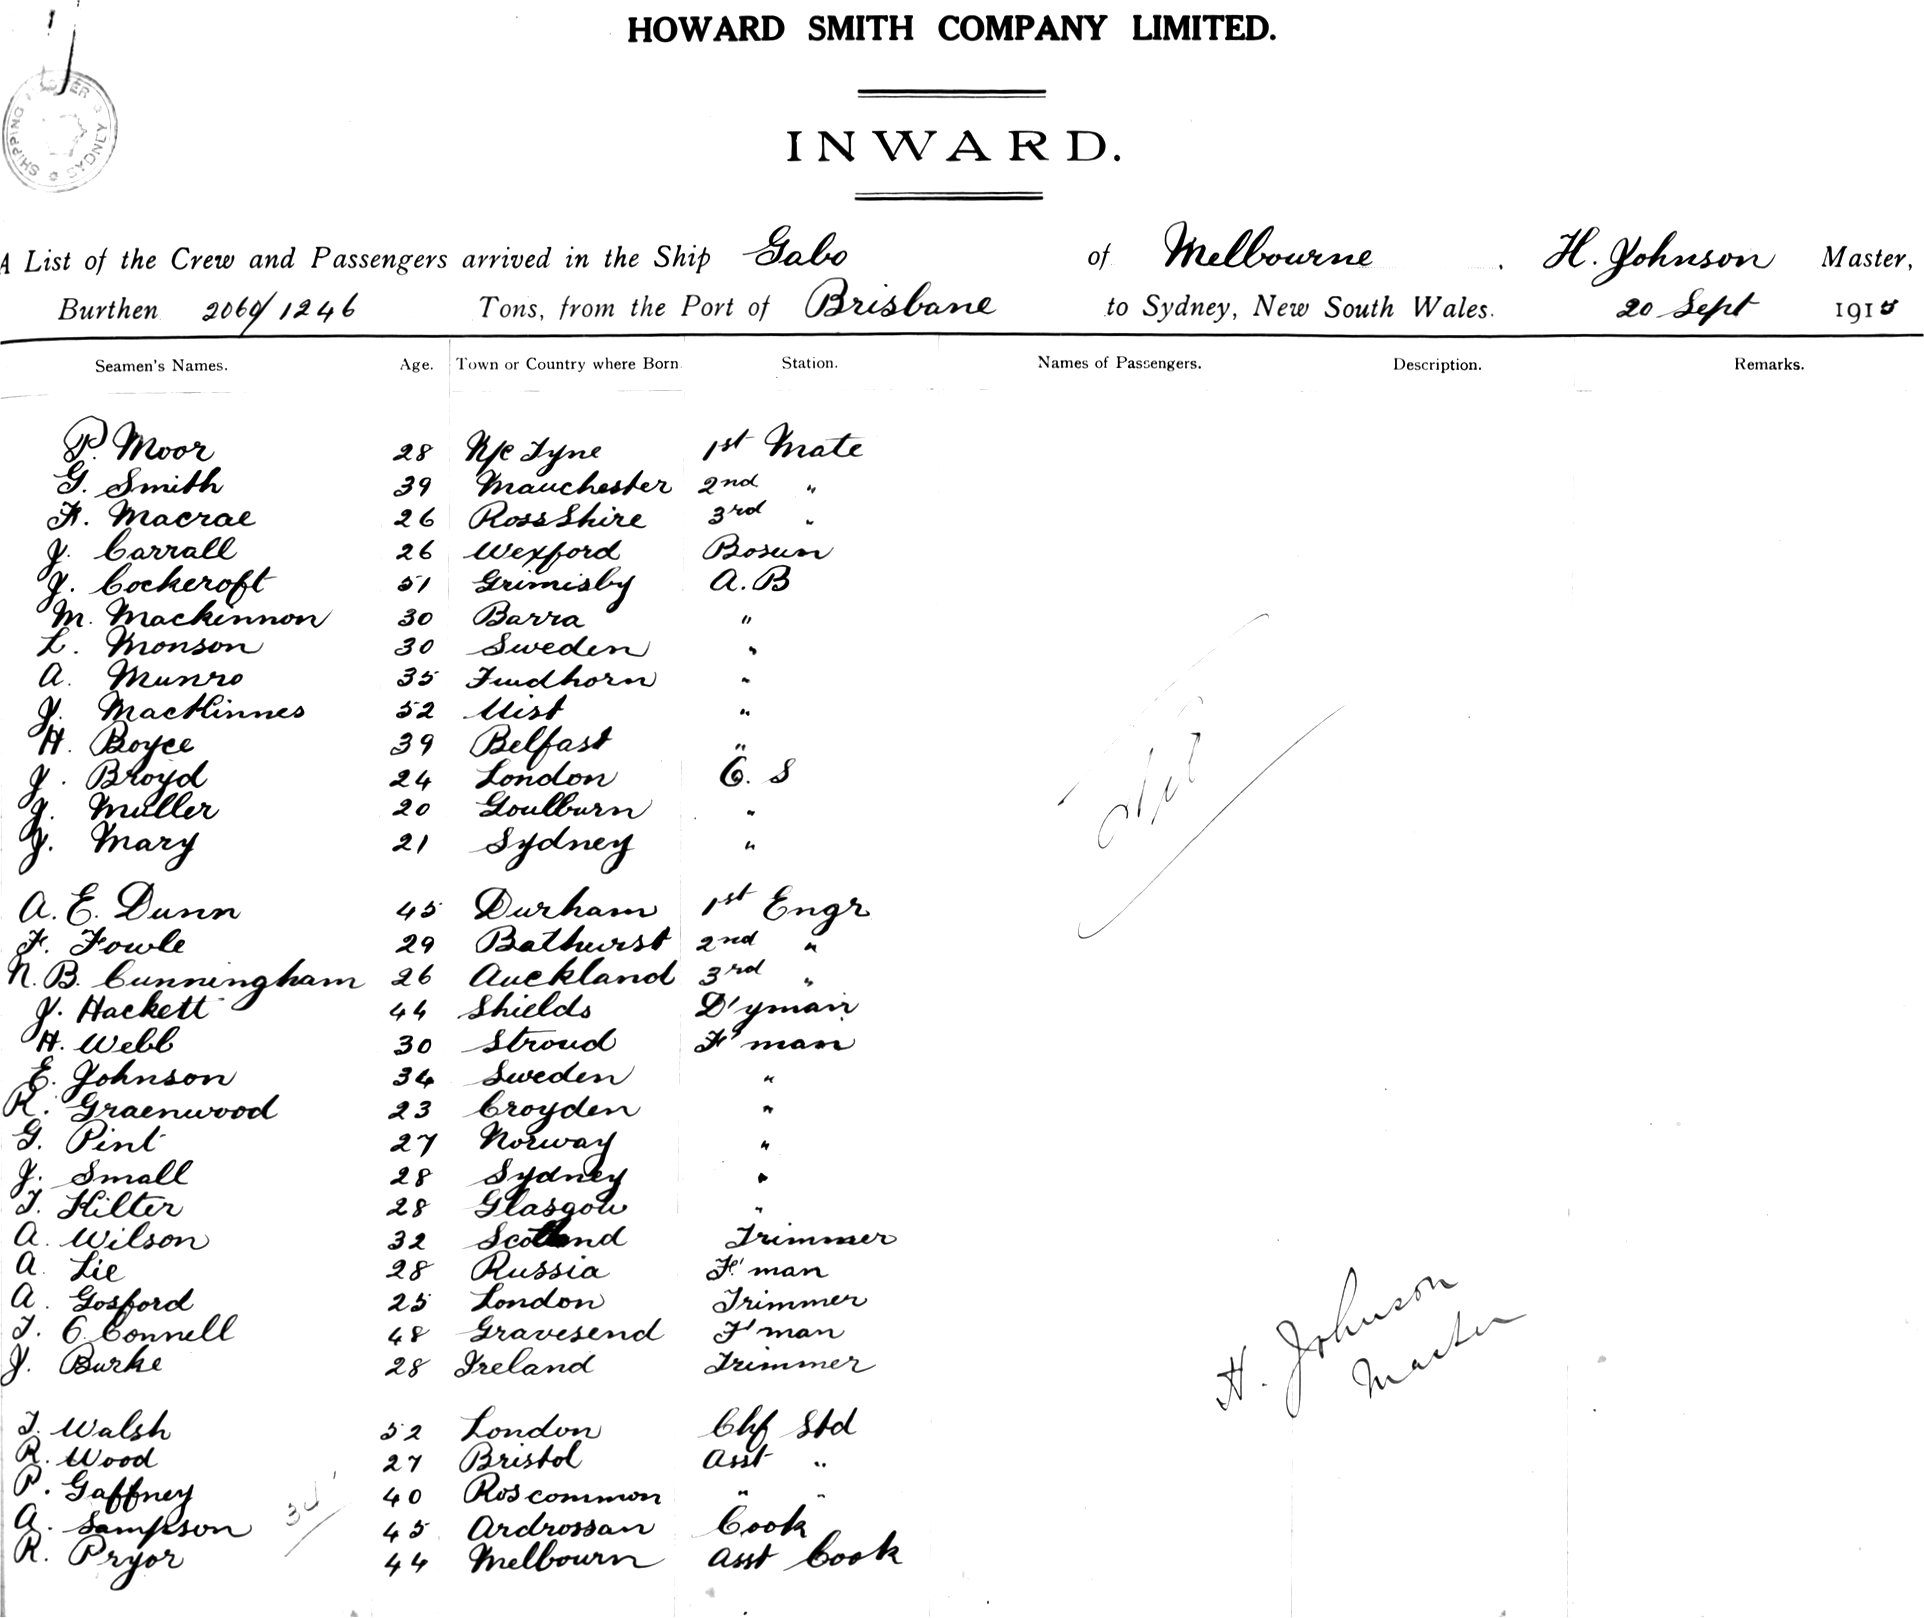 HOWARD SMITH COMPANY LIMITED.
SHIPPING MASTER SYDNEY
INWARD.
A List of the Crew and Passengers arrived in the Ship Gabo of Melbourne, H. Johnson Master,
Burthen 2060/1246 Tons, from the Port of Brisbane to Sydney, New South Wales. 20 Sept 1915
Seamen's Names. Age. Town or Country where Born Station. Names of Passengers. Description. Remarks.
P. Moor 28 N/c Tyne 1st Mate
G. Smith 39 Manchester 2nd "
F. Macrae 26 RossShire 3rd "
J. Carrall 26 Wexford Bosun
J. Cockcroft 51 Grimisby A.B
M. Mackinnon 30 Barra "
L. Monson 30 Sweden "
A. Munro 35 Findhorn "
J. MacKinnes 52 Uist "
H. Boyce 39 Belfast "
J. Broyd 24 London O. S
J. Muller 20 Goulburn "
J. Mary 21 Sydney "
A. E. Dunn 45 Durham 1st Engr
F. Fowle 29 Bathurst 2nd "
N. B. Cunningham 26 Auckland 3rd "
J. Hackett 44 Shields D'yman
H. Webb 30 Stroud F'man
E. Johnson 34 Sweden "
R. Graenwood 23 Croyden "
G. Pint 27 Norway "
J. Small 28 Sydney "
T. Kilter 28 Glasgow "
A. Wilson 32 Scotland Trimmer
A. Lie 28 Russia F'man
A. Gosford 25 London Trimmer
T. O Connell 48 Gravesend F'man
J. Burke 28 Ireland Trimmer
H. Johnson
Master
T. Walsh 52 London Chf Std
R. Wood 27 Bristol Asst "
P. Gaffney 40 Roscommon " "
A. Sampson 45 Ardrossan Cook
R. Pryor 44 Melbourn Asst Cook